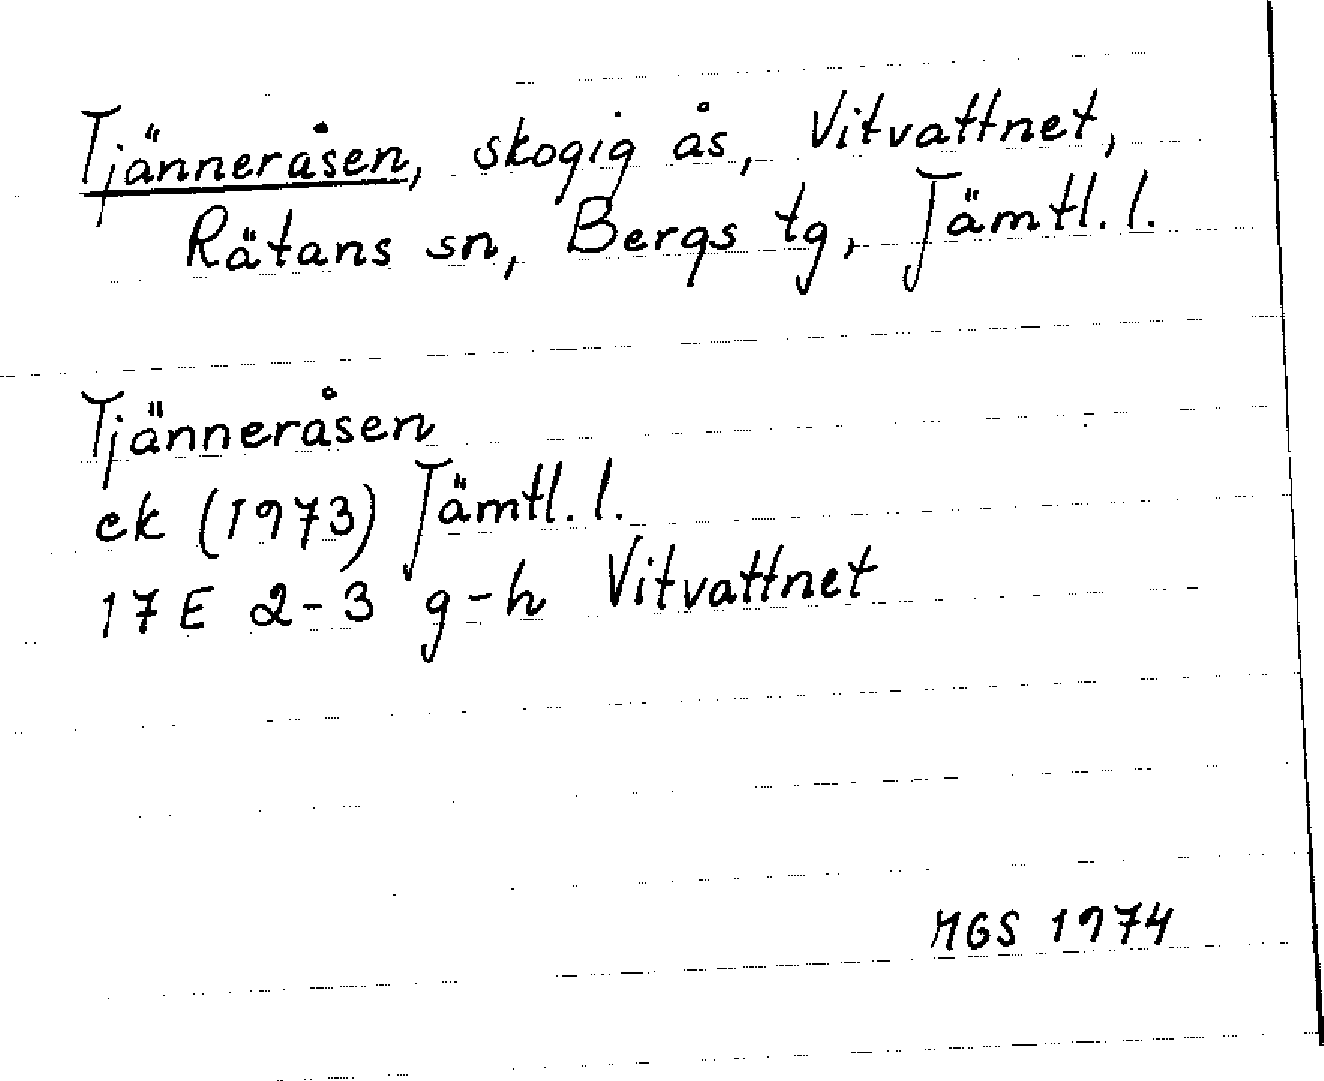 Tjänneråsen, skogig ås, Vitvattnet,
Rätans sn, Bergs tg, Jämtl. l.
Tjänneråsen
ek (1973) Jämtl. l.
17 E 2-3 g-h Vitvattnet
MGS 1974